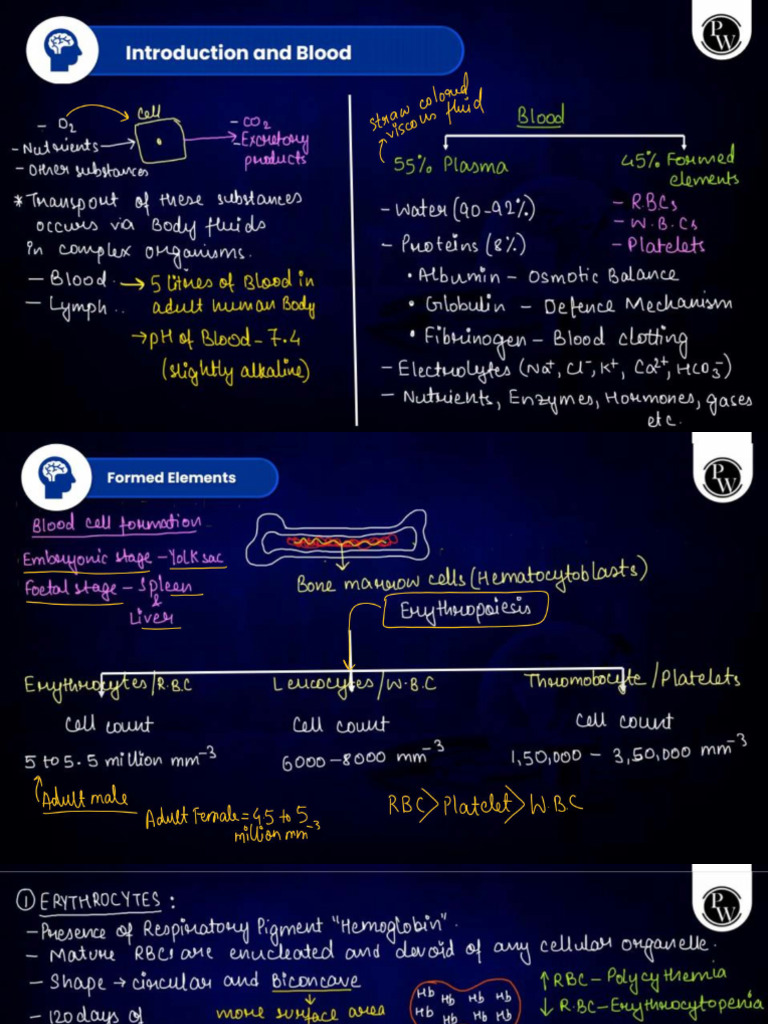 PW
Introduction and Blood
- O2
- Nutrients
- Other substances
Cell
- CO2
- Excretory
products
* Transport of these substances
occurs via Body fluids
in complex organisms.
- Blood → 5 litres of Blood in
adult human Body
- Lymph..
→ pH of Blood - 7.4
(slightly alkaline)
straw colored
viscous fluid
Blood
55% Plasma
- Water (90-92%)
- Proteins (8%)
• Albumin - Osmotic Balance
• Globulin - Defence Mechanism
• Fibrinogen - Blood clotting
- Electrolytes (Na+, Cl-, K+, Ca2+, HCO3-)
- Nutrients, Enzymes, Hormones, gases
etc.
45% Formed
elements
- R.B.Cs
- W.B.Cs
- Platelets
PW
Formed Elements
Blood cell formation
Embryonic stage - Yolk sac
Foetal stage - Spleen
&
Liver
Bone marrow cells (Hematocytoblasts)
Erythropoiesis
Erythrocytes/R.B.C
Cell count
5 to 5.5 million mm-3
Adult male
Adult Female = 4.5 to 5
million mm-3
Leucocytes/W.B.C
Cell count
6000-8000 mm-3
Thromobocyte/Platelets
Cell count
1,50,000 - 3,50,000 mm-3
RBC > Platelet > W.B.C
PW
① ERYTHROCYTES:
- Presence of Respiratory Pigment "Hemoglobin".
- Mature RBCs are enucleated and devoid of any cellular organelle.
- Shape → circular and Biconcave
more surface area
- 120 days of
Hb Hb Hb Hb
Hb Hb Hb Hb
↑ RBC - Polycythemia
↓ R.BC - Erythrocytopenia